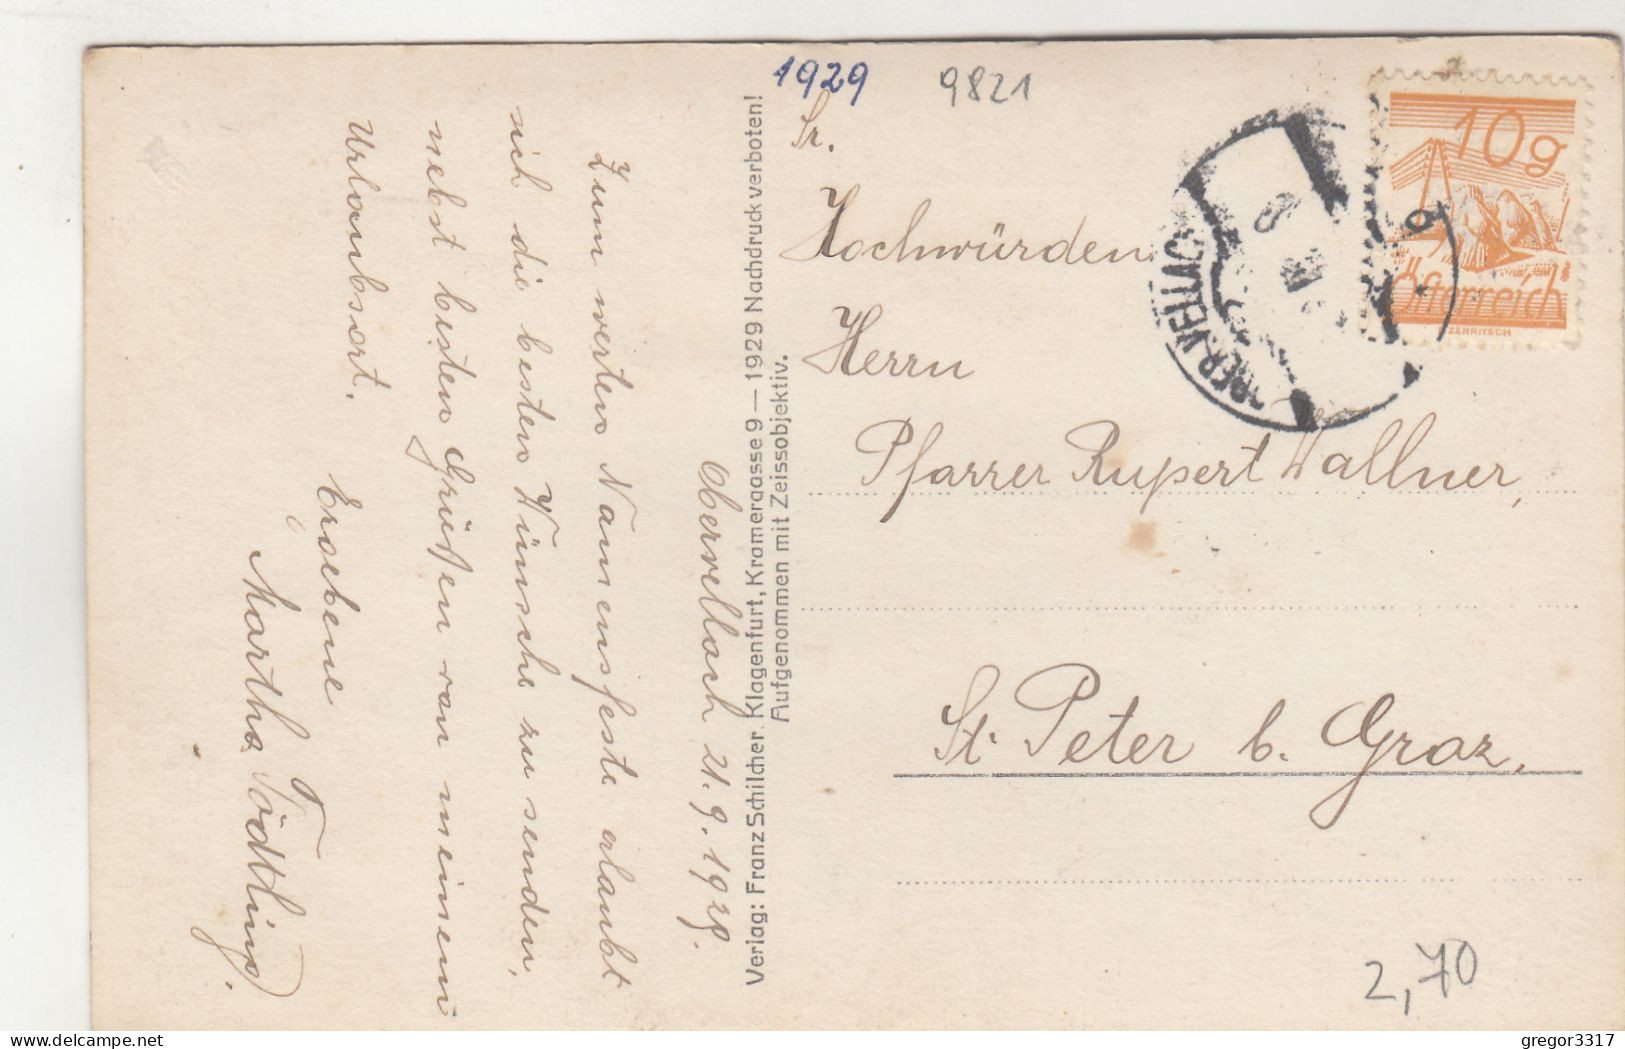 1929
9821
Sr.
Hochwürden
Herrn
Pfarrer Rupert Wallner,
St. Peter b. Graz,
2,70
10g
Österreich
ZERRITSCH
OBER-VELLACH
Verlag: Franz Schilcher, Klagenfurt, Kramergasse 9 — 1929 Nachdruck verboten!
Aufgenommen mit Zeissobjektiv.
Obervellach 21.9.1929.
Zum werten Namensfeste erlaubt
sich die besten Wünsche zu senden,
nebst besten Grüßen von meinem
Urlaubsort.
Ergebene
Martha Tödtling.
gregor3317